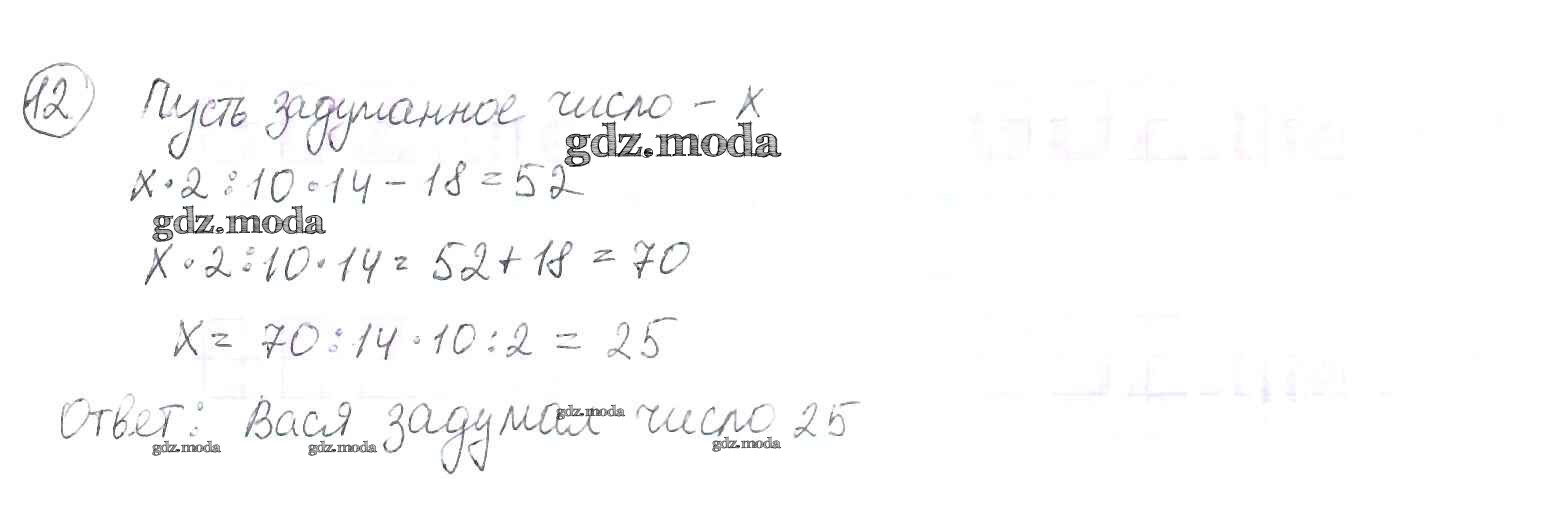 12 Пусть задуманное число - x
gdz.moda
x·2:10·14-18=52
gdz.moda
x·2:10·14=52+18=70
x=70:14·10:2=25
Ответ: Вася задумал число 25
gdz.moda
gdz.moda
gdz.moda
gdz.moda